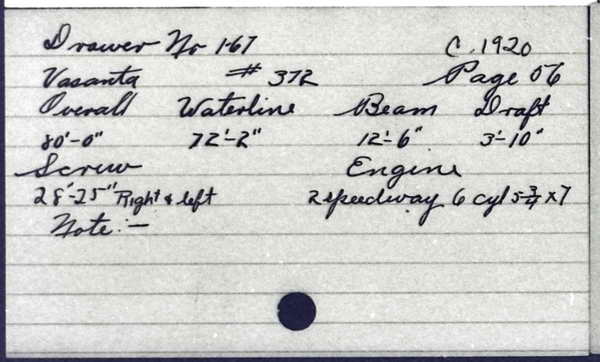 Drawer No 1-67 C. 1920
Vasanta # 372 Page 06
Overall Waterline Beam Draft
80'-0" 72'-2" 12'-6" 3'-10"
Screw Engine
28"-25" Right & left 2 speedway 6 cyl 5 3/4 x 7
Note:-